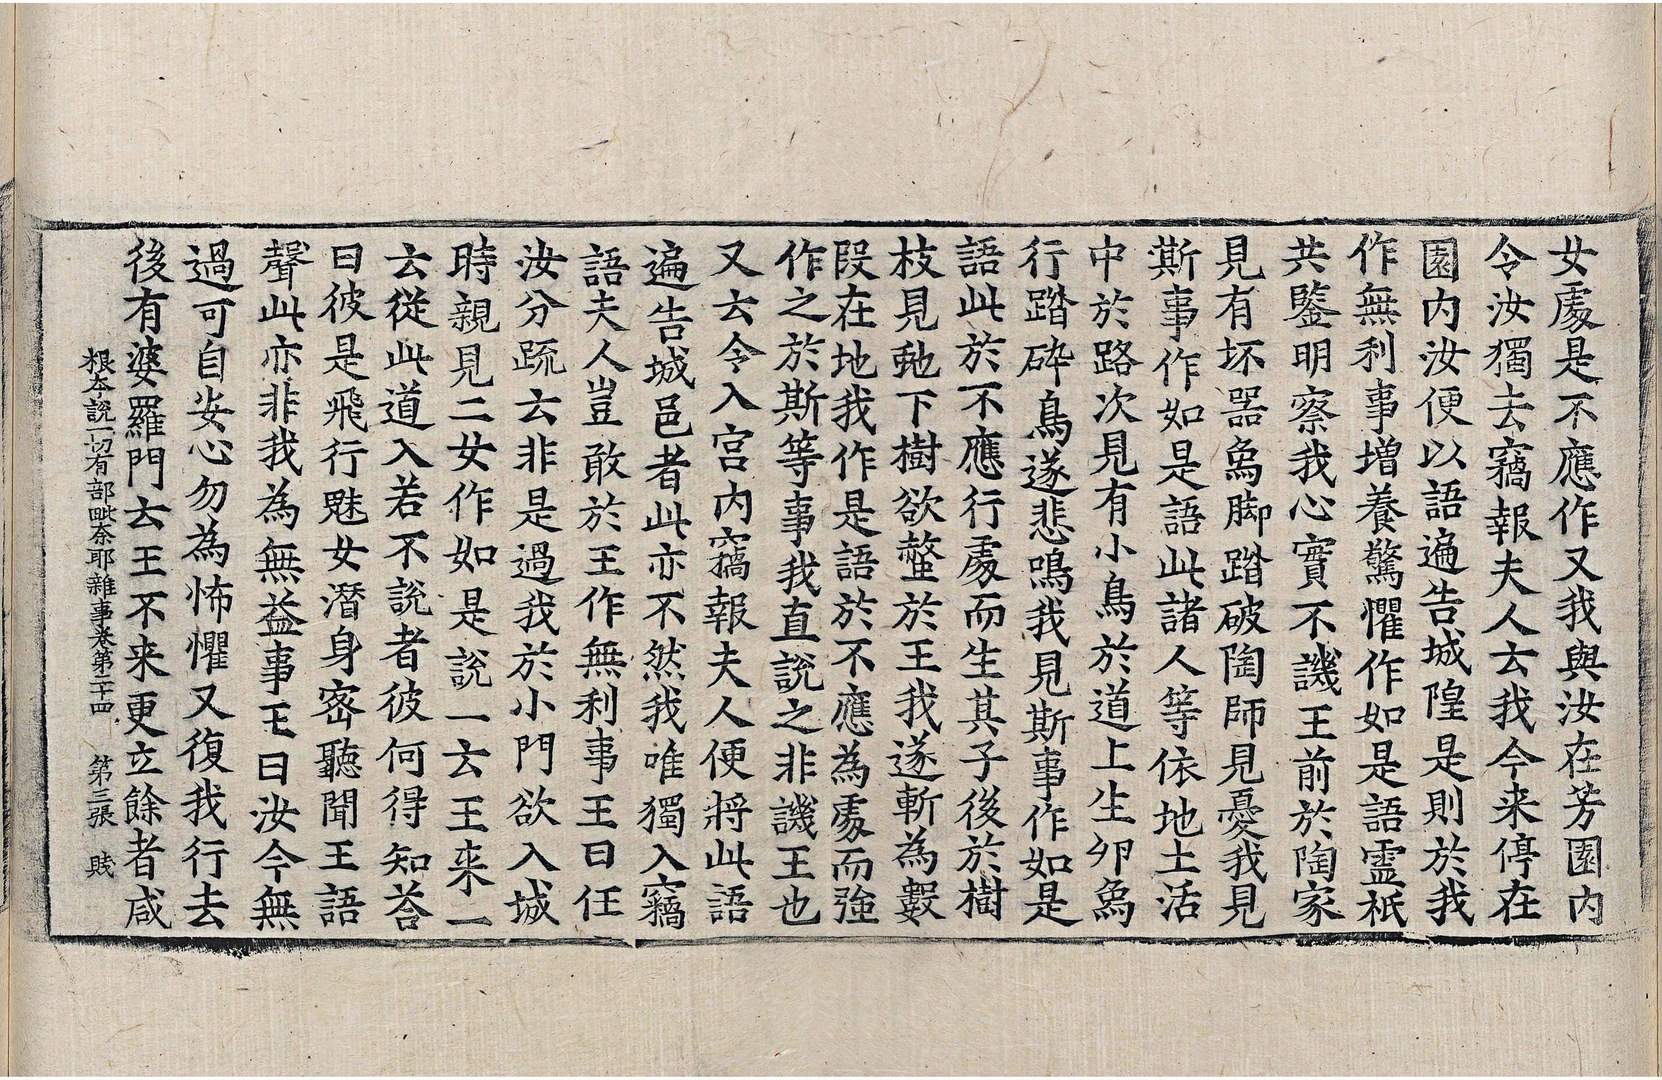 女處是不應作又我與汝在芳園内
令汝獨去竊報夫人云我今来停在
園内汝便以語遍告城隍是則於我
作無利事增養驚懼作如是語霊祇
共鑒明察我心實不譏王前於陶家
見有坏器象脚踏破陶師見憂我見
斯事作如是語此諸人等依地土活
中於路次見有小鳥於道上生卵象
行踏碎鳥遂悲鳴我見斯事作如是
語此於不應行處而生其子後於樹
枝見虵下樹欲螫於王我遂斬為數
段在地我作是語於不應為處而強
作之於斯等事我直說之非譏王也
又云令入宮内竊報夫人便將此語
遍告城邑者此亦不然我唯獨入竊
語夫人豈敢於王作無利事王曰任
汝分疏云非是過我於小門欲入城
時親見二女作如是說一云王来一
云從此道入若不說者彼何得知荅
曰彼是飛行魅女潛身密聽聞王語
聲此亦非我為無益事王曰汝今無
過可自安心勿為怖懼又復我行去
後有婆羅門云王不来更立餘者咸
根本說一切有部毗奈耶雜事卷第二十四 第三張 賎